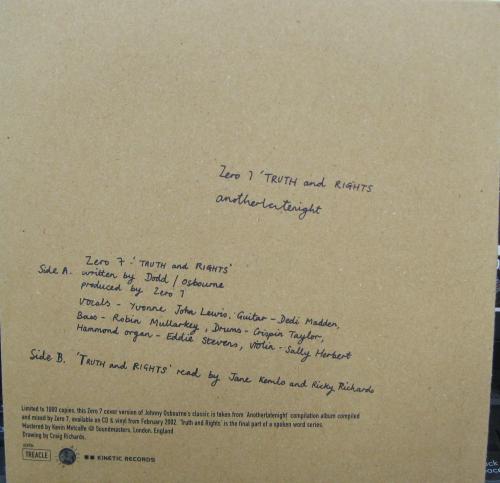 Zero 7 'TRUTH and RIGHTS
anotherlatenight
Zero 7 - 'TRUTH and RIGHTS'
Side A. written by Dodd / Osbourne
produced by Zero 7
Vocals - Yvonne John Lewis. Guitar - Dedi Madden,
Bass - Robin Mullarkey, Drums - Crispin Taylor,
Hammond organ - Eddie Stevens, Violin - Sally Herbert
Side B. 'TRUTH and RIGHTS' read by Jane Kemlo and Ricky Richards
Limited to 1000 copies, this Zero 7 cover version of Johnny Osbourne's classic is taken from 'Anotherlatenight' compilation album compiled
and mixed by Zero 7, available on CD & vinyl from February 2002. 'Truth and Rights' is the final part of a spoken word series.
Mastered by Kevin Metcalfe @ Soundmasters, London, England.
Drawing by Craig Richards.
TREACLE
KINETIC RECORDS